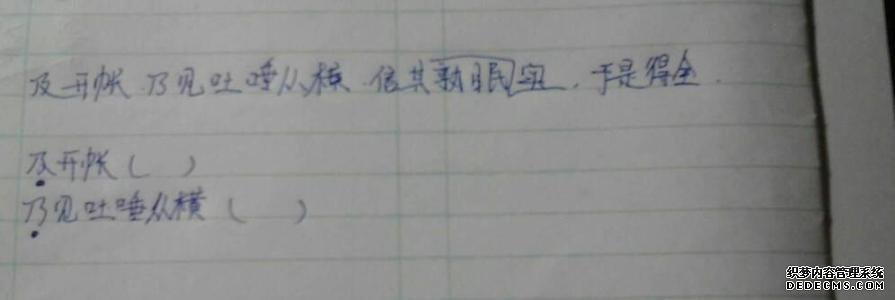 及开帐.乃见吐唾从横.信其熟眠实.于是得全.
及开帐( )
乃见吐唾从横( )
织梦内容管理系统
DEDECMS.COM